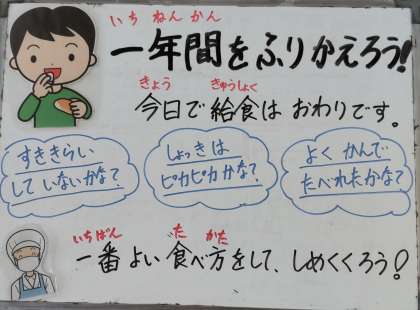 いちねんかん
一年間をふりかえろう!
きょう きゅうしょく
今日で給食はおわりです。
すききらい
していないかな?
しょっきは
ピカピカかな?
よくかんで
たべれたかな?
いちばん た かた
一番よい食べ方をして、しめくくろう!